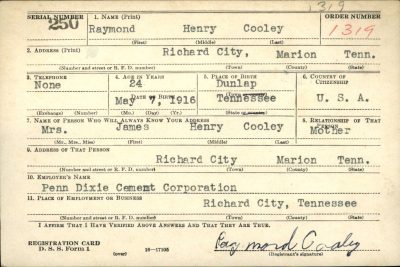 1319
SERIAL NUMBER 1. NAME (Print) ORDER NUMBER
250 Raymond Henry Cooley 1319
(First) (Middle) (Last)
2. ADDRESS (Print)
Richard City, Marion Tenn.
(Number and street or R. F. D. number) (Town) (County) (State)
3. TELEPHONE 4. AGE IN YEARS 5. PLACE OF BIRTH 6. COUNTRY OF CITIZENSHIP
None 24 Dunlap
DATE OF BIRTH (Town or county)
May 7, 1916 Tennessee U. S. A.
(Exchange) (Number) (Mo.) (Day) (Yr.) (State or country)
7. NAME OF PERSON WHO WILL ALWAYS KNOW YOUR ADDRESS 8. RELATIONSHIP OF THAT PERSON
Mrs. James Henry Cooley Mother
(Mr., Mrs., Miss) (First) (Middle) (Last)
9. ADDRESS OF THAT PERSON
Richard City Marion Tenn.
(Number and street or R. F. D. number) (Town) (County) (State)
10. EMPLOYER'S NAME
Penn Dixie Cement Corporation
11. PLACE OF EMPLOYMENT OR BUSINESS
Richard City, Tennessee
(Number and street or R. F. D. number) (Town) (County) (State)
I AFFIRM THAT I HAVE VERIFIED ABOVE ANSWERS AND THAT THEY ARE TRUE.
REGISTRATION CARD
D. S. S. Form 1 (over) 16—17105 Raymond Cooley
(Registrant's signature)